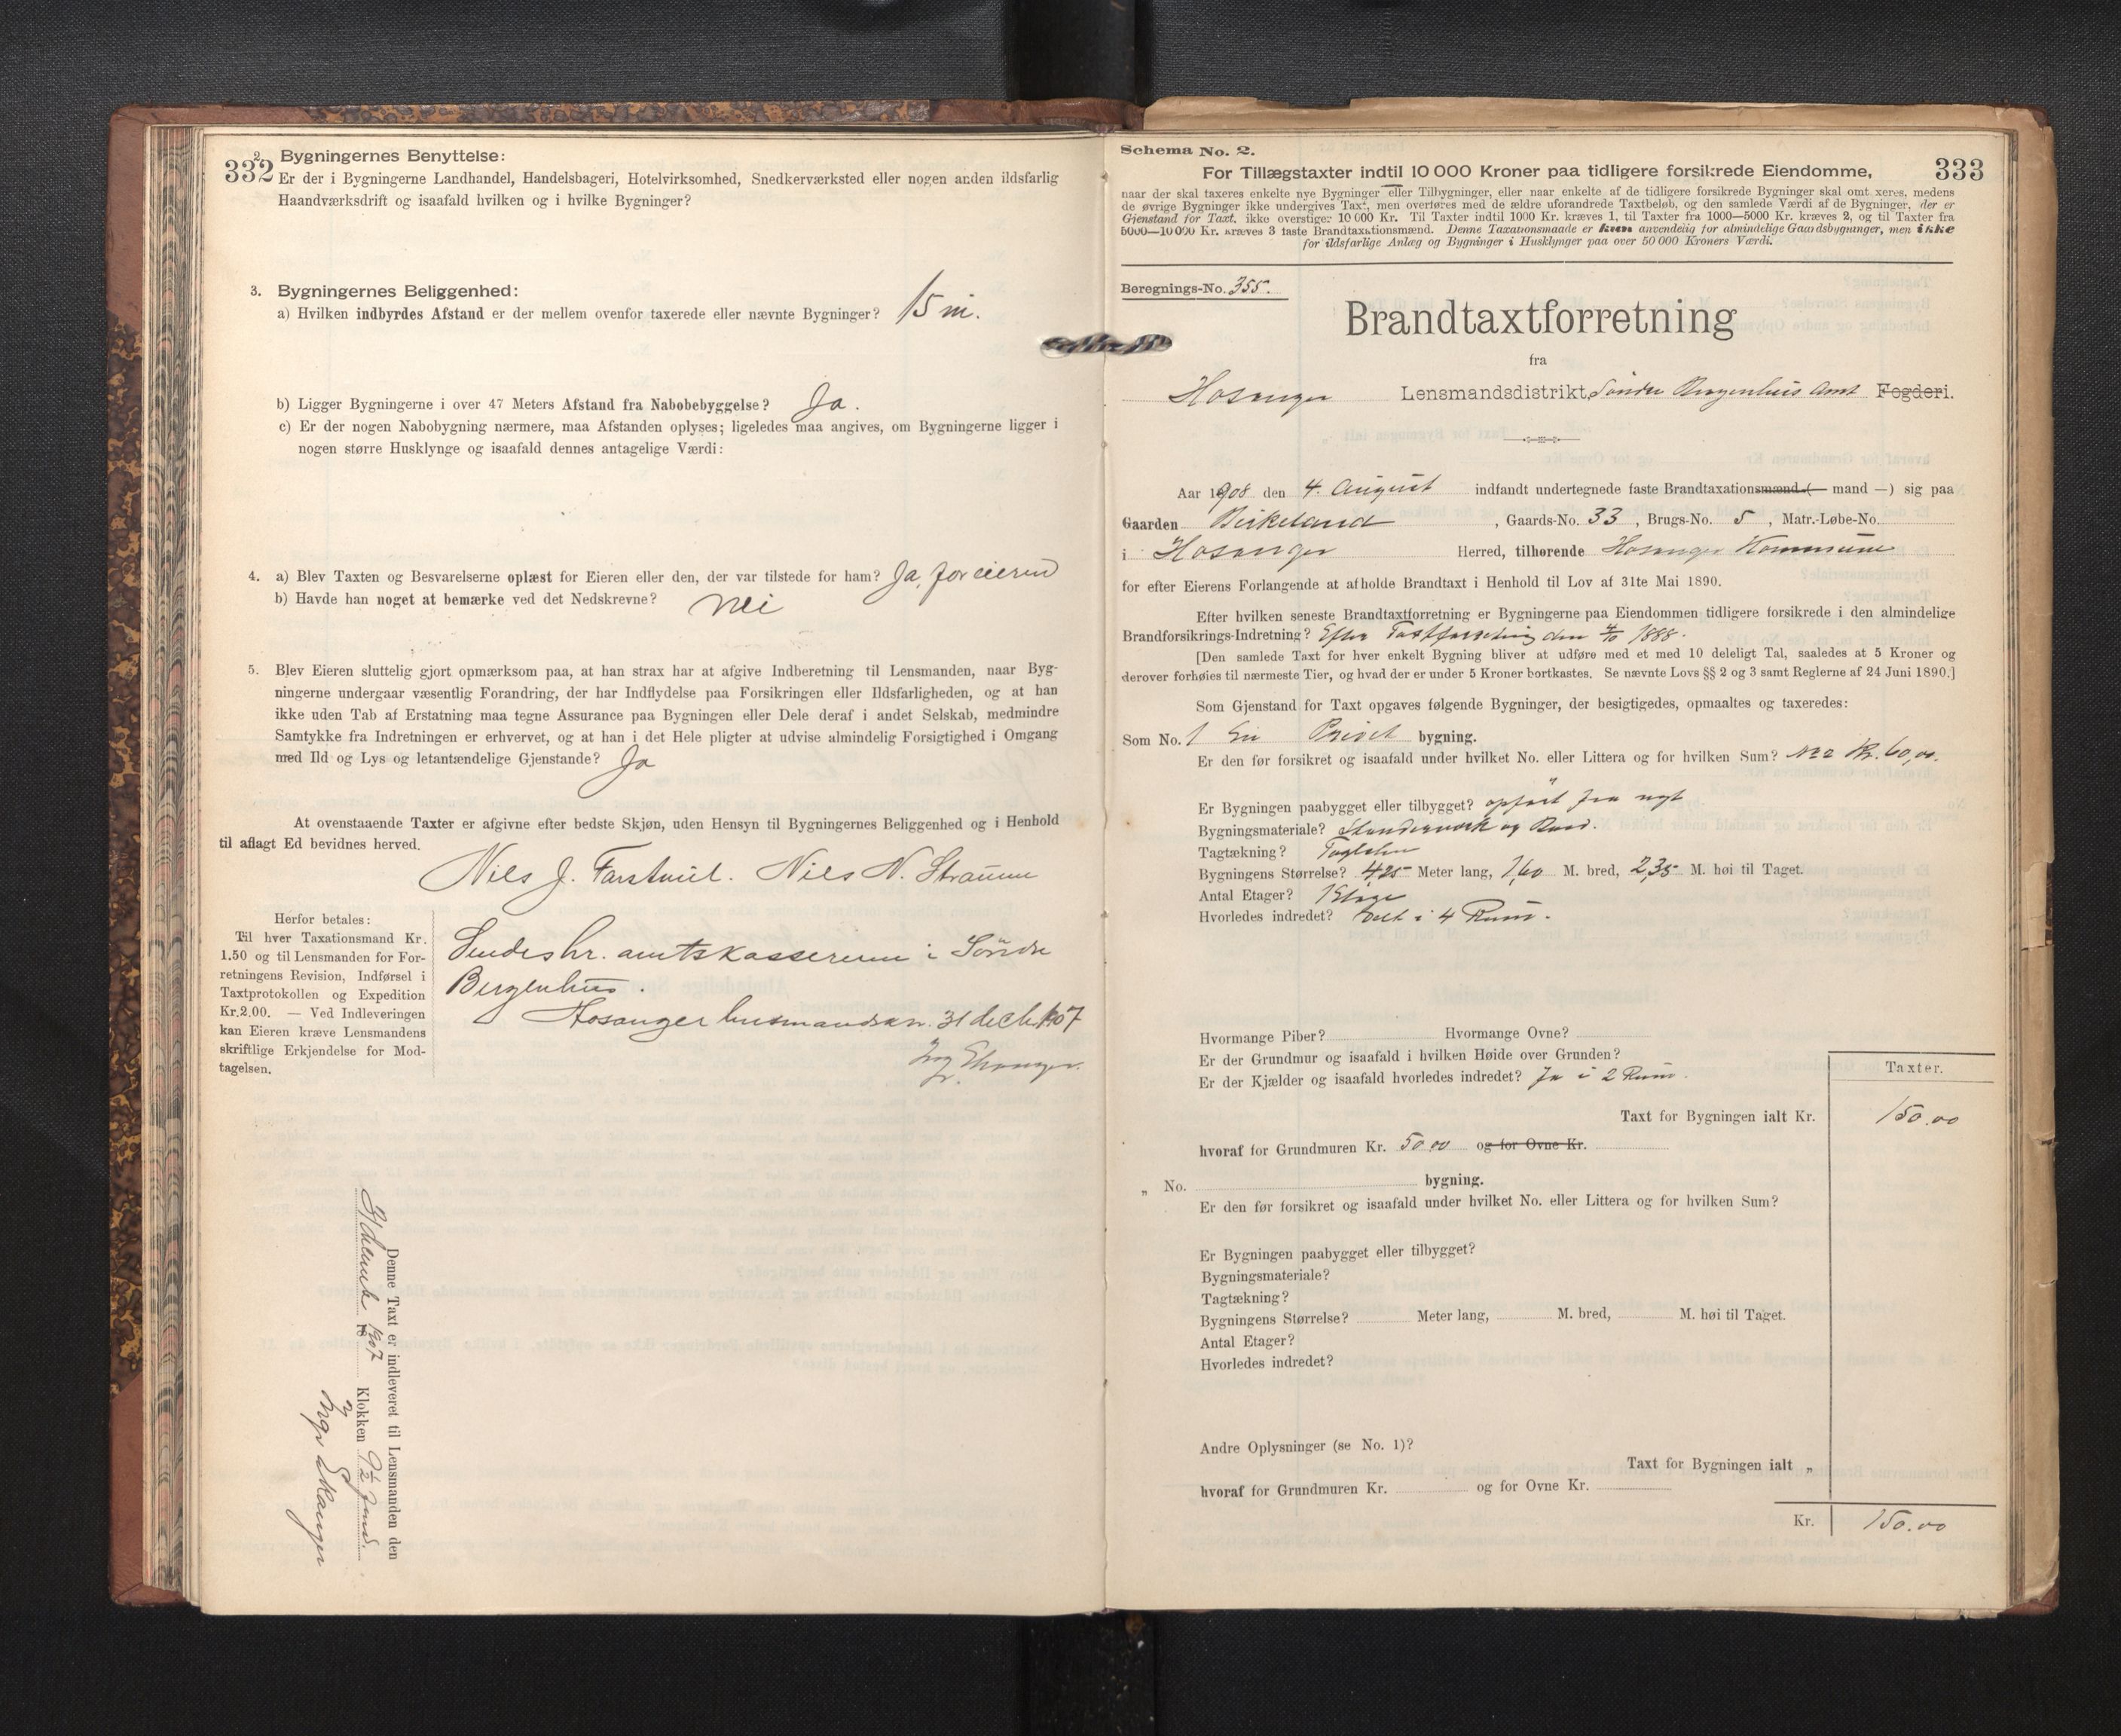 332
2. Bygningernes Benyttelse:
Er der i Bygningerne Landhandel, Handelsbageri, Hotelvirksomhed, Snedkerværksted eller nogen anden ildsfarlig
Haandværksdrift og isaafald hvilken og i hvilke Bygninger?
3. Bygningernes Beliggenhed:
a) Hvilken indbyrdes Afstand er der mellem ovenfor taxerede eller nævnte Bygninger? 15 m.
b) Ligger Bygningerne i over 47 Meters Afstand fra Nabobebyggelse? Ja.
c) Er der nogen Nabobygning nærmere, maa Afstanden oplyses; ligeledes maa angives, om Bygningerne ligger i
nogen større Husklynge og isaafald dennes antagelige Værdi:
4. a) Blev Taxten og Besvarelserne oplæst for Eieren eller den, der var tilstede for ham? Ja, for eieren
b) Havde han noget at bemærke ved det Nedskrevne? Nei
5. Blev Eieren sluttelig gjort opmærksom paa, at han strax har at afgive Indberetning til Lensmanden, naar Byg-
ningerne undergaar væsentlig Forandring, der har Indflydelse paa Forsikringen eller Ildsfarligheden, og at han
ikke uden Tab af Erstatning maa tegne Assurance paa Bygningen eller Dele deraf i andet Selskab, medmindre
Samtykke fra Indretningen er erhvervet, og at han i det Hele pligter at udvise almindelig Forsigtighed i Omgang
med Ild og Lys og letantændelige Gjenstande? Ja
At ovenstaaende Taxter er afgivne efter bedste Skjøn, uden Hensyn til Bygningernes Beliggenhed og i Henhold
til aflagt Ed bevidnes herved.
Nils J. Nils N. Straume
Herfor betales:
Til hver Taxationsmand Kr.
1.50 og til Lensmanden for For-
retningens Revision, Indførsel i
Taxtprotokollen og Expedition
Kr.2.00. — Ved Indleveringen
kan Eieren kræve Lensmandens
skriftlige Erkjendelse for Mod-
tagelsen.
Sendes hr. amtskassereren i Søndre
Bergenhus.
Hosanger lensmandskn. 31 decbr. 1907
Denne Taxt er indleveret til Lensmanden den
31 1907 Klokken 9½ Form.
333
Schema No. 2.
For Tillægstaxter indtil 10 000 Kroner paa tidligere forsikrede Eiendomme,
naar der skal taxeres enkelte nye Bygninger eller Tilbygninger, eller naar enkelte af de tidligere forsikrede Bygninger skal omtaxeres, medens
de øvrige Bygninger ikke undergives Taxt, men overføres med de ældre uforandrede Taxtbeløb, og den samlede Værdi af de Bygninger, der er
Gjenstand for Taxt, ikke overstiger 10 000 Kr. Til Taxter indtil 1000 Kr. kræves 1, til Taxter fra 1000—5000 Kr. kræves 2, og til Taxter fra
5000—10 000 Kr. kræves 3 faste Brandtaxationsmænd. Denne Taxationsmaade er kun anvendelig for almindelige Gaardsbygninger, men ikke
for ildsfarlige Anlæg og Bygninger i Husklynger paa over 50 000 Kroners Værdi.
Beregnings-No. 355.
Brandtaxtforretning
fra
Hosanger Lensmandsdistrikt, Søndre Bergenhus Amt Fogderi.
Aar 1908 den 4. August indfandt undertegnede faste Brandtaxationsmænd (— mand —) sig paa
Gaarden Birkeland, Gaards-No. 33, Brugs-No. 5, Matr.-Løbe-No.
i Hosanger Herred, tilhørende Hosanger Kommune
for efter Eierens Forlangende at afholde Brandtaxt i Henhold til Lov af 31te Mai 1890.
Efter hvilken seneste Brandtaxtforretning er Bygningerne paa Eiendommen tidligere forsikrede i den almindelige
Brandforsikrings-Indretning? Efter Taxtforretning den 4/10 1888.
[Den samlede Taxt for hver enkelt Bygning bliver at udføre med et med 10 deleligt Tal, saaledes at 5 Kroner og
derover forhøies til nærmeste Tier, og hvad der er under 5 Kroner bortkastes. Se nævnte Lovs §§ 2 og 3 samt Reglerne af 24 Juni 1890.]
Som Gjenstand for Taxt opgaves følgende Bygninger, der besigtigedes, opmaaltes og taxeredes:
Som No. 1 En Privet bygning.
Er den før forsikret og isaafald under hvilket No. eller Littera og for hvilken Sum? No 2 Kr. 60,00.
Er Bygningen paabygget eller tilbygget? opført fra nyt
Bygningsmateriale? Stenderverk og Bord.
Tagtækning? Taglsten
Bygningens Størrelse? 4,25 Meter lang, 1,60 M. bred, 2,35 M. høi til Taget.
Antal Etager? 1 Etage
Hvorledes indredet? delt i 4 Rum.
Hvormange Piber? Hvormange Ovne?
Er der Grundmur og isaafald i hvilken Høide over Grunden?
Er der Kjælder og isaafald hvorledes indredet? Ja i 2 Rum.
Taxter.
Taxt for Bygningen ialt Kr. 150.00
hvoraf for Grundmuren Kr. 50.00 og for Ovne Kr.
„ No. bygning.
Er den før forsikret og isaafald under hvilket No. eller Littera og for hvilken Sum?
Er Bygningen paabygget eller tilbygget?
Bygningsmateriale?
Tagtækning?
Bygningens Størrelse? Meter lang, M. bred, M. høi til Taget.
Antal Etager?
Hvorledes indredet?
Andre Oplysninger (se No. 1)?
Taxt for Bygningen ialt „
hvoraf for Grundmuren Kr. og for Ovne Kr.
Kr. 150.00